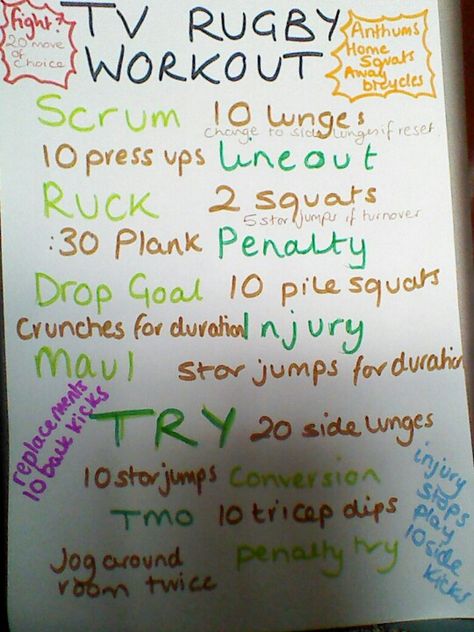 Fight?
20 move
of
choice
TV RUGBY
WORKOUT
Anthums
Home
Squats
Away
bicycles
Scrum 10 lunges
change to side lunges if reset
10 press ups Lineout
RUCK 2 squats
5 star jumps if turnover
:30 Plank Penalty
Drop Goal 10 pile squats
Crunches for duration Injury
Maul star jumps for duration
replacements
10 back kicks
TRY 20 side lunges
10 star jumps Conversion
TMO 10 tricep dips
Jog around
room twice
penalty try
injury
stops
play
10 side
kicks